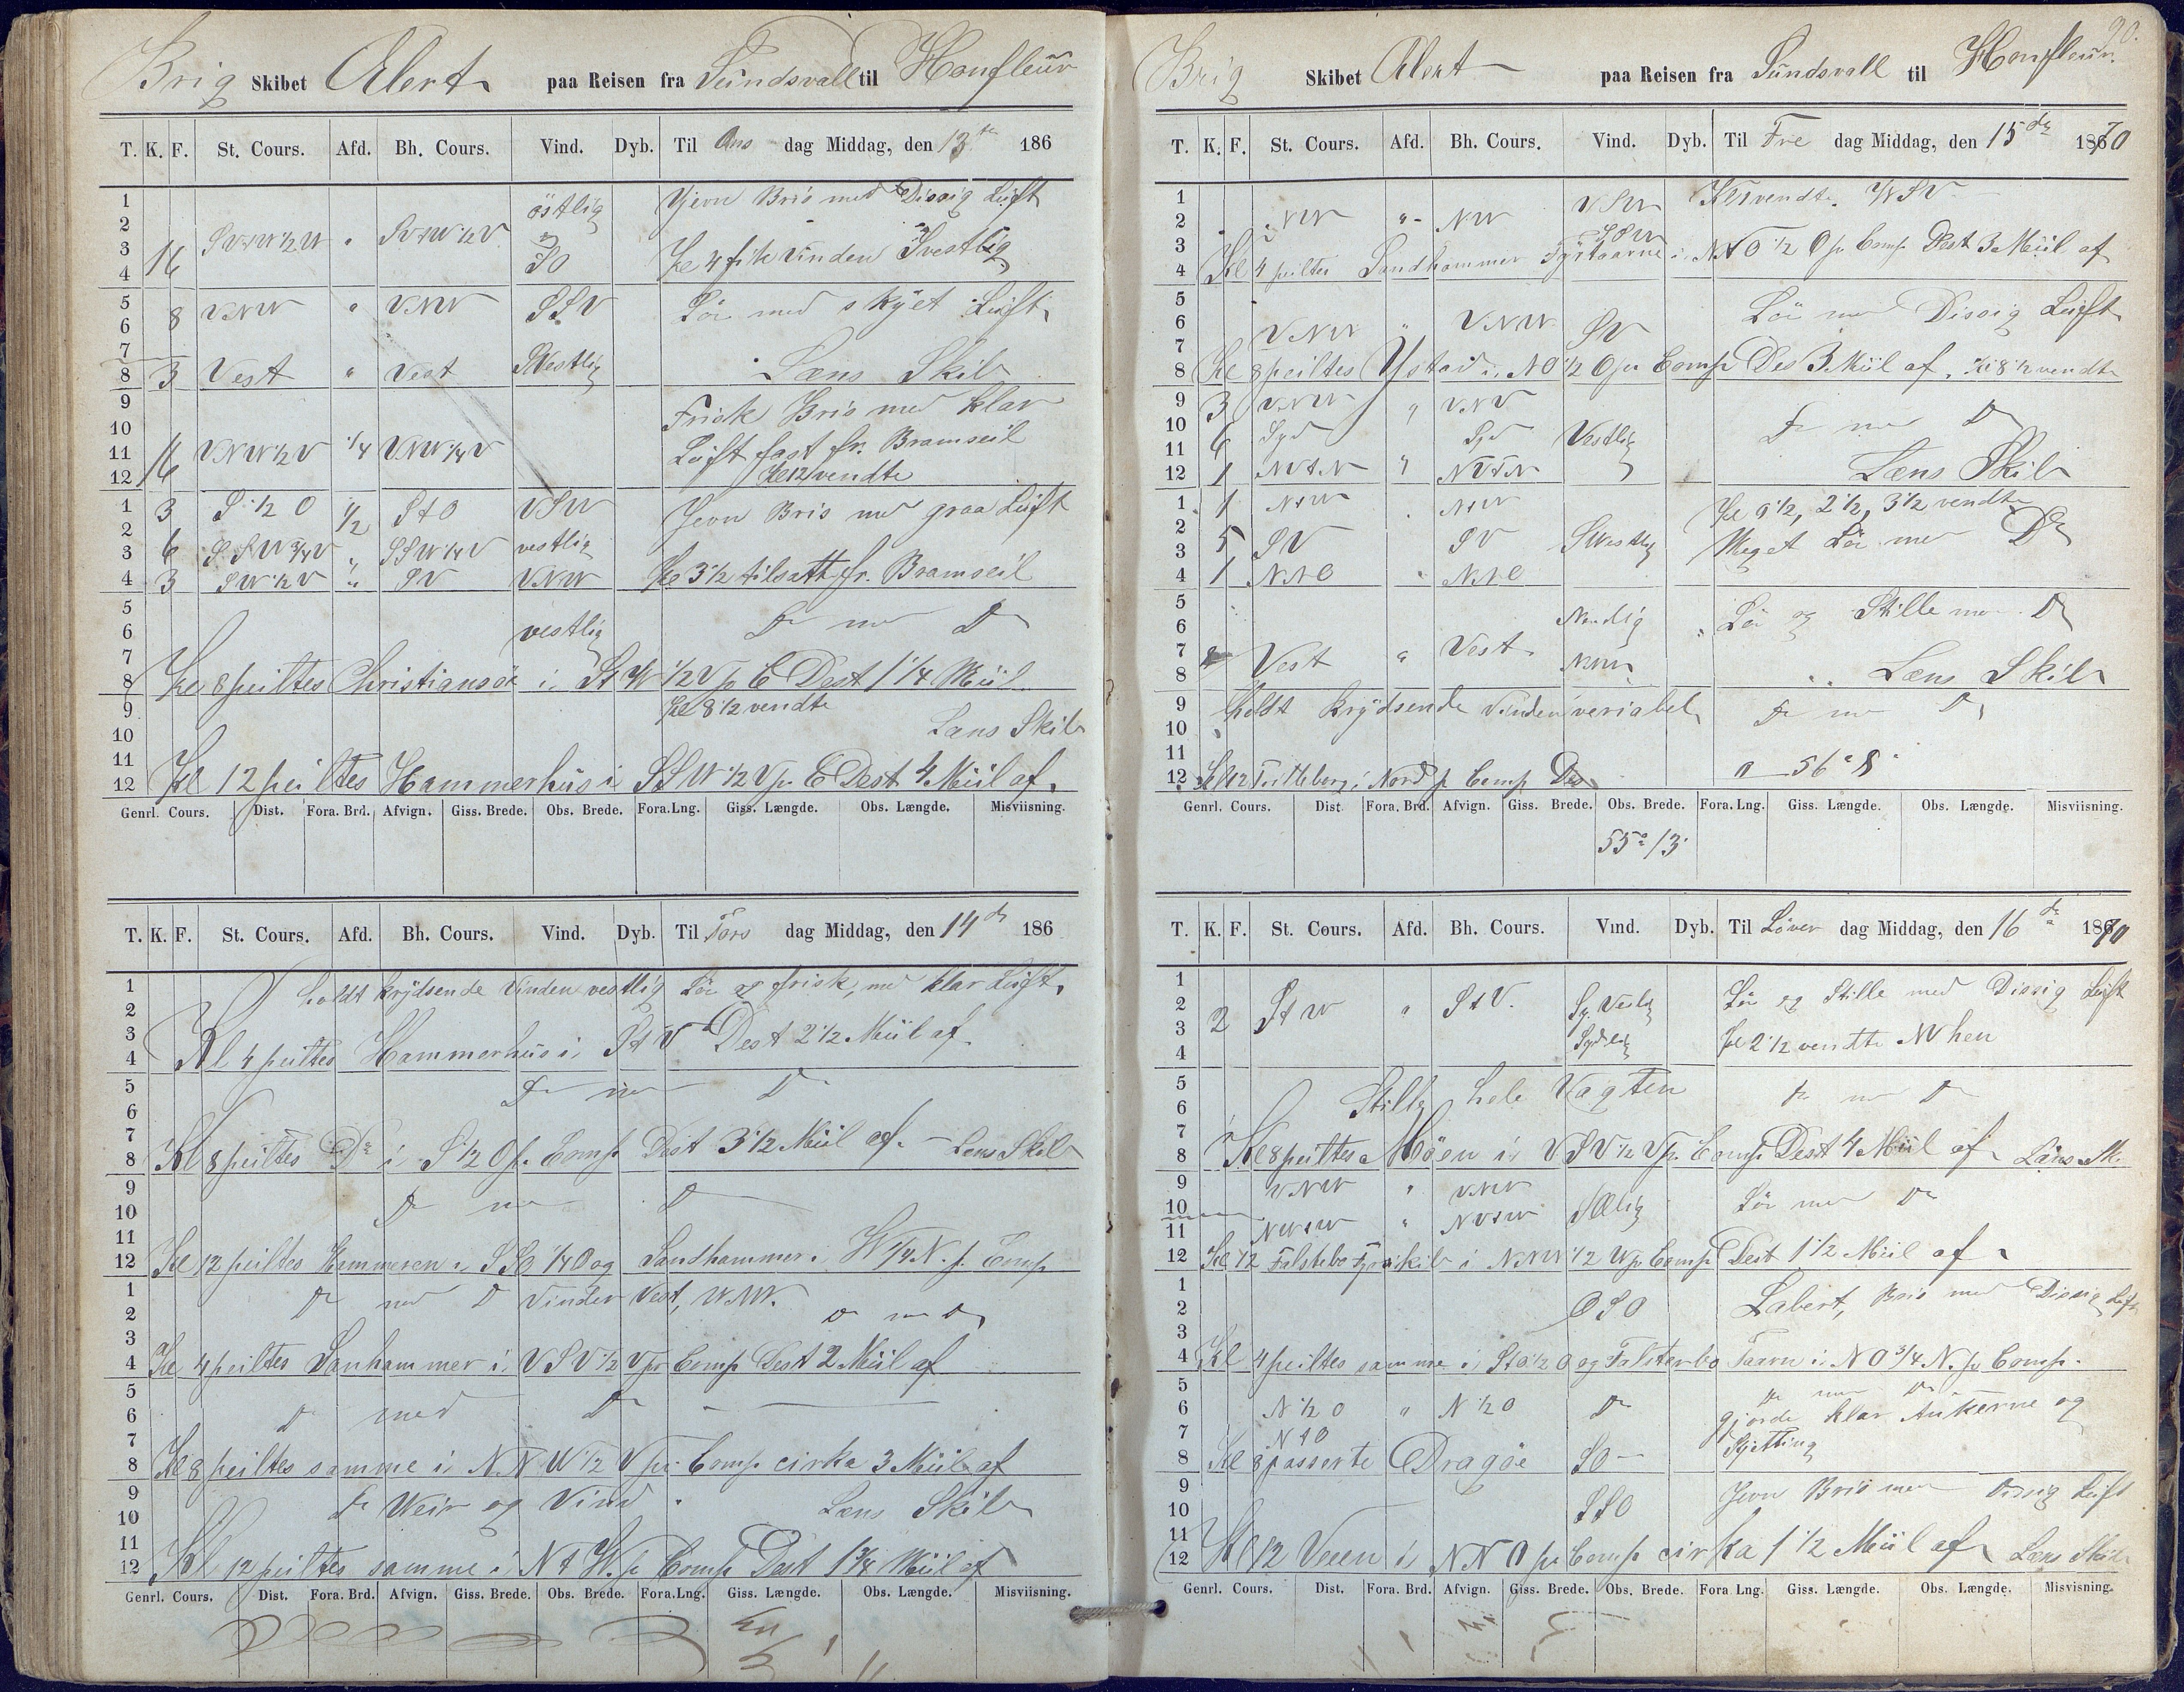 Brig Skibet Alert paa Reisen fra Sundsvall til Honfleur
T. K. F. St. Cours. Afd. Bh. Cours. Vind. Dyb. Til Ons dag Middag, den 13te 186
1 östlig Gjevn Bris med Dissig Luft
2
3 16 "
4 SO Kl 4 fik Vinden Svestlig
5 8 VNW " VNW SSV Lör med skyet Luft
6
7
8 3 Vest " Vest SVestlig Læns Skib
9 Frisk Bris med klar
10
11 16 VNW½V ¼ VNW¼V Luft fast fr. Bramseil
12 Kl 12 vendte
1 3 S½O ½ StO VSW Jevn Bris med graa Luft
2
3 6 SSW¾V " SSW¼V vestlig
4 3 SW½V " SV VNW Kl 3½ tilsatt fr. Bramseil
5 Do med Do
6 vestlig
7
8 Kl 8 peiltes Christiansöe i StW ½V p C Dest 1¼ Miil
9 Kl 8½ vendte
10 Læns Skib
11
12 Kl 12 peiltes Hammerhus i SSW½V p. C Dest 4 Miil af.
Genrl. Cours. Dist. Fora. Brd. Afvign. Giss. Brede. Obs. Brede. Fora.Lng. Giss. Længde. Obs. Længde. Misviisning.
T. K. F. St. Cours. Afd. Bh. Cours. Vind. Dyb. Til Tors dag Middag, den 14de 186
1 holdt krydsende Vinden vestlig Lör og frisk, med klar Luft
2
3
4 Kl 4 peiltes Hammerhus i StV Dest 2½ Miil af
5 Do med Do
6
7
8 Kl 8 peiltes Do i S½O p. Comp Dest 3½ Miil af. - Læns Skib
9 Do med Do
10
11
12 Kl 12 peiltes Hammeren i SSO ¼ O og Sandhammer i W¼N. p. Comp
1 Do med Do Vinden Vest, WNW.
2 Do med Do
3
4 Kl 4 peiltes Sanhammer i VSV½V pr Comp Dest 2 Miil af
5 Do med Do
6
7
8 Kl 8 peiltes samme i NNW½V pr. Comp cirka 3 Miil af
9 Do Weir og Vind.
10 Læns Skib
11
12 Kl 12 peiltes samme i NtW. p Comp Dest 1¾ Miil af
Genrl. Cours. Dist. Fora. Brd. Afvign. Giss. Brede. Obs. Brede. Fora.Lng. Giss. Længde. Obs. Længde. Misviisning.
90.
Brig Skibet Alert paa Reisen fra Sundsvall til Honfleur.
T. K. F. St. Cours. Afd. Bh. Cours. Vind. Dyb. Til Fre dag Middag, den 15de 1870
1 VSW Kl 1 vendte.
2 NW " NW
3
4 Kl 4 peiltes Sandhammer Fyrtaarne i NtO½O p. Comp Dest 3 Miil af
5 Lör med Dissig Luft
6 VNW " VNW SV
7
8 Kl 8 peiltes Ystad i NO½O pr Comp Des 3 Miil af. Kl 8½ vendte
9 3 VNW " VNV
10 6 Syd Syd Vestlig Do med Do
11
12 1 NVtN " NVtN Læns Skib
1 1 NtW . NtW Kl 0½, 2½, 3½ vendte
2
3 5 SV SV SWestlig Meget Lör med Do
4 1 NtO NtO
5
6 Nordlig Lör og Stille med Do
7 Vest " Vest
8 NNW Læns Skib
9 holdt krydsende Vinden variabel Do med Do
10
11 a 56° 8'
12 Kl 12 Trelleborg i Nord p Comp Des
Genrl. Cours. Dist. Fora. Brd. Afvign. Giss. Brede. Obs. Brede. Fora.Lng. Giss. Længde. Obs. Længde. Misviisning.
55° 13'
T. K. F. St. Cours. Afd. Bh. Cours. Vind. Dyb. Til Löver dag Middag, den 16de 1870
1 Lör og Stille med Dissig Luft
2 StW " StV. Sy. Vestlig
3 2
4 Sydlig Kl 2½ vendte NV hen
5 Do med Do
6 Stille hele Vagten
7
8 Kl 8 peiltes Möen i VSV½V p. Comp Dest 4 Miil af Læns Sk.
9 VNW " VNW
10 Lör med Do
11 NWtW " NVtW
12 Kl 12 Falstebo Fyrskib i NNW½W p Comp Dest 1½ Miil af
1
2 OSO Labert, Bris med Dissig Luft
3
4 Kl 4 peiltes samme i StO½O og Falsterbo Taarn i NO¾N. p Comp.
5 Do med Do
6 N½O " N½O Do gjorde klar Ankerne og
7 NtO Skjetting
8 Kl 8 passerte Dragöe SO
9 Jevn Bris med Dissig Luft
10 SSO
11
12 Kl 12 Veen i NNO pr Comp cirka 1½ Miil af Læns Skib
Genrl. Cours. Dist. Fora. Brd. Afvign. Giss. Brede. Obs. Brede. Fora Lng. Giss. Længde. Obs. Længde. Misvisning.